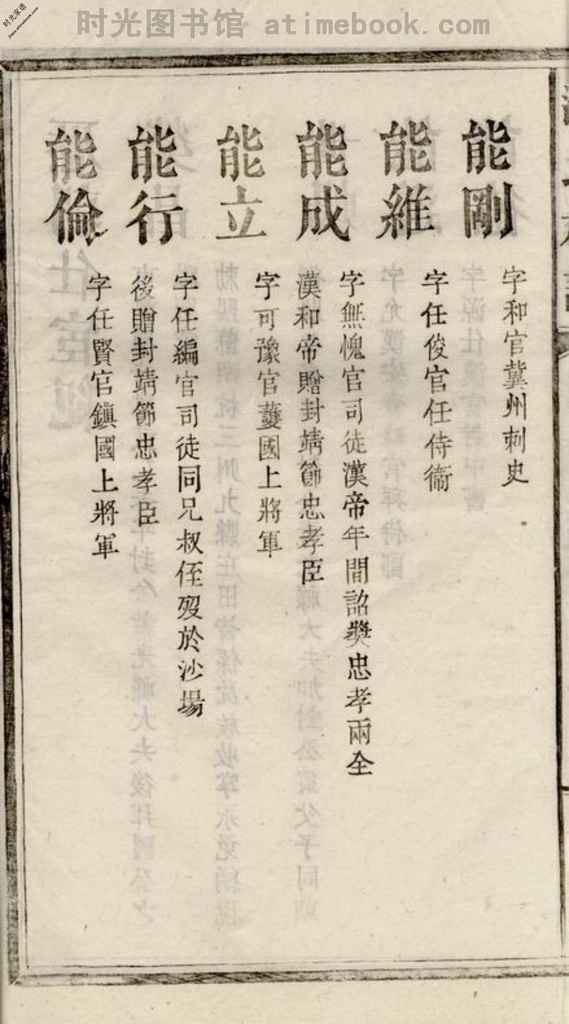 时光图书馆 atimebook.com
能剛
字和官冀州刺史
能維
字任俊官任侍衞
能成
字無愧官司徒漢帝年間詔奬忠孝兩全
漢和帝贈封靖節忠孝臣
能立
字可豫官護國上將軍
能行
字任編官司徒同兄叔侄歿於沙場
後贈封靖節忠孝臣
能倫
字任賢官鎭國上將軍